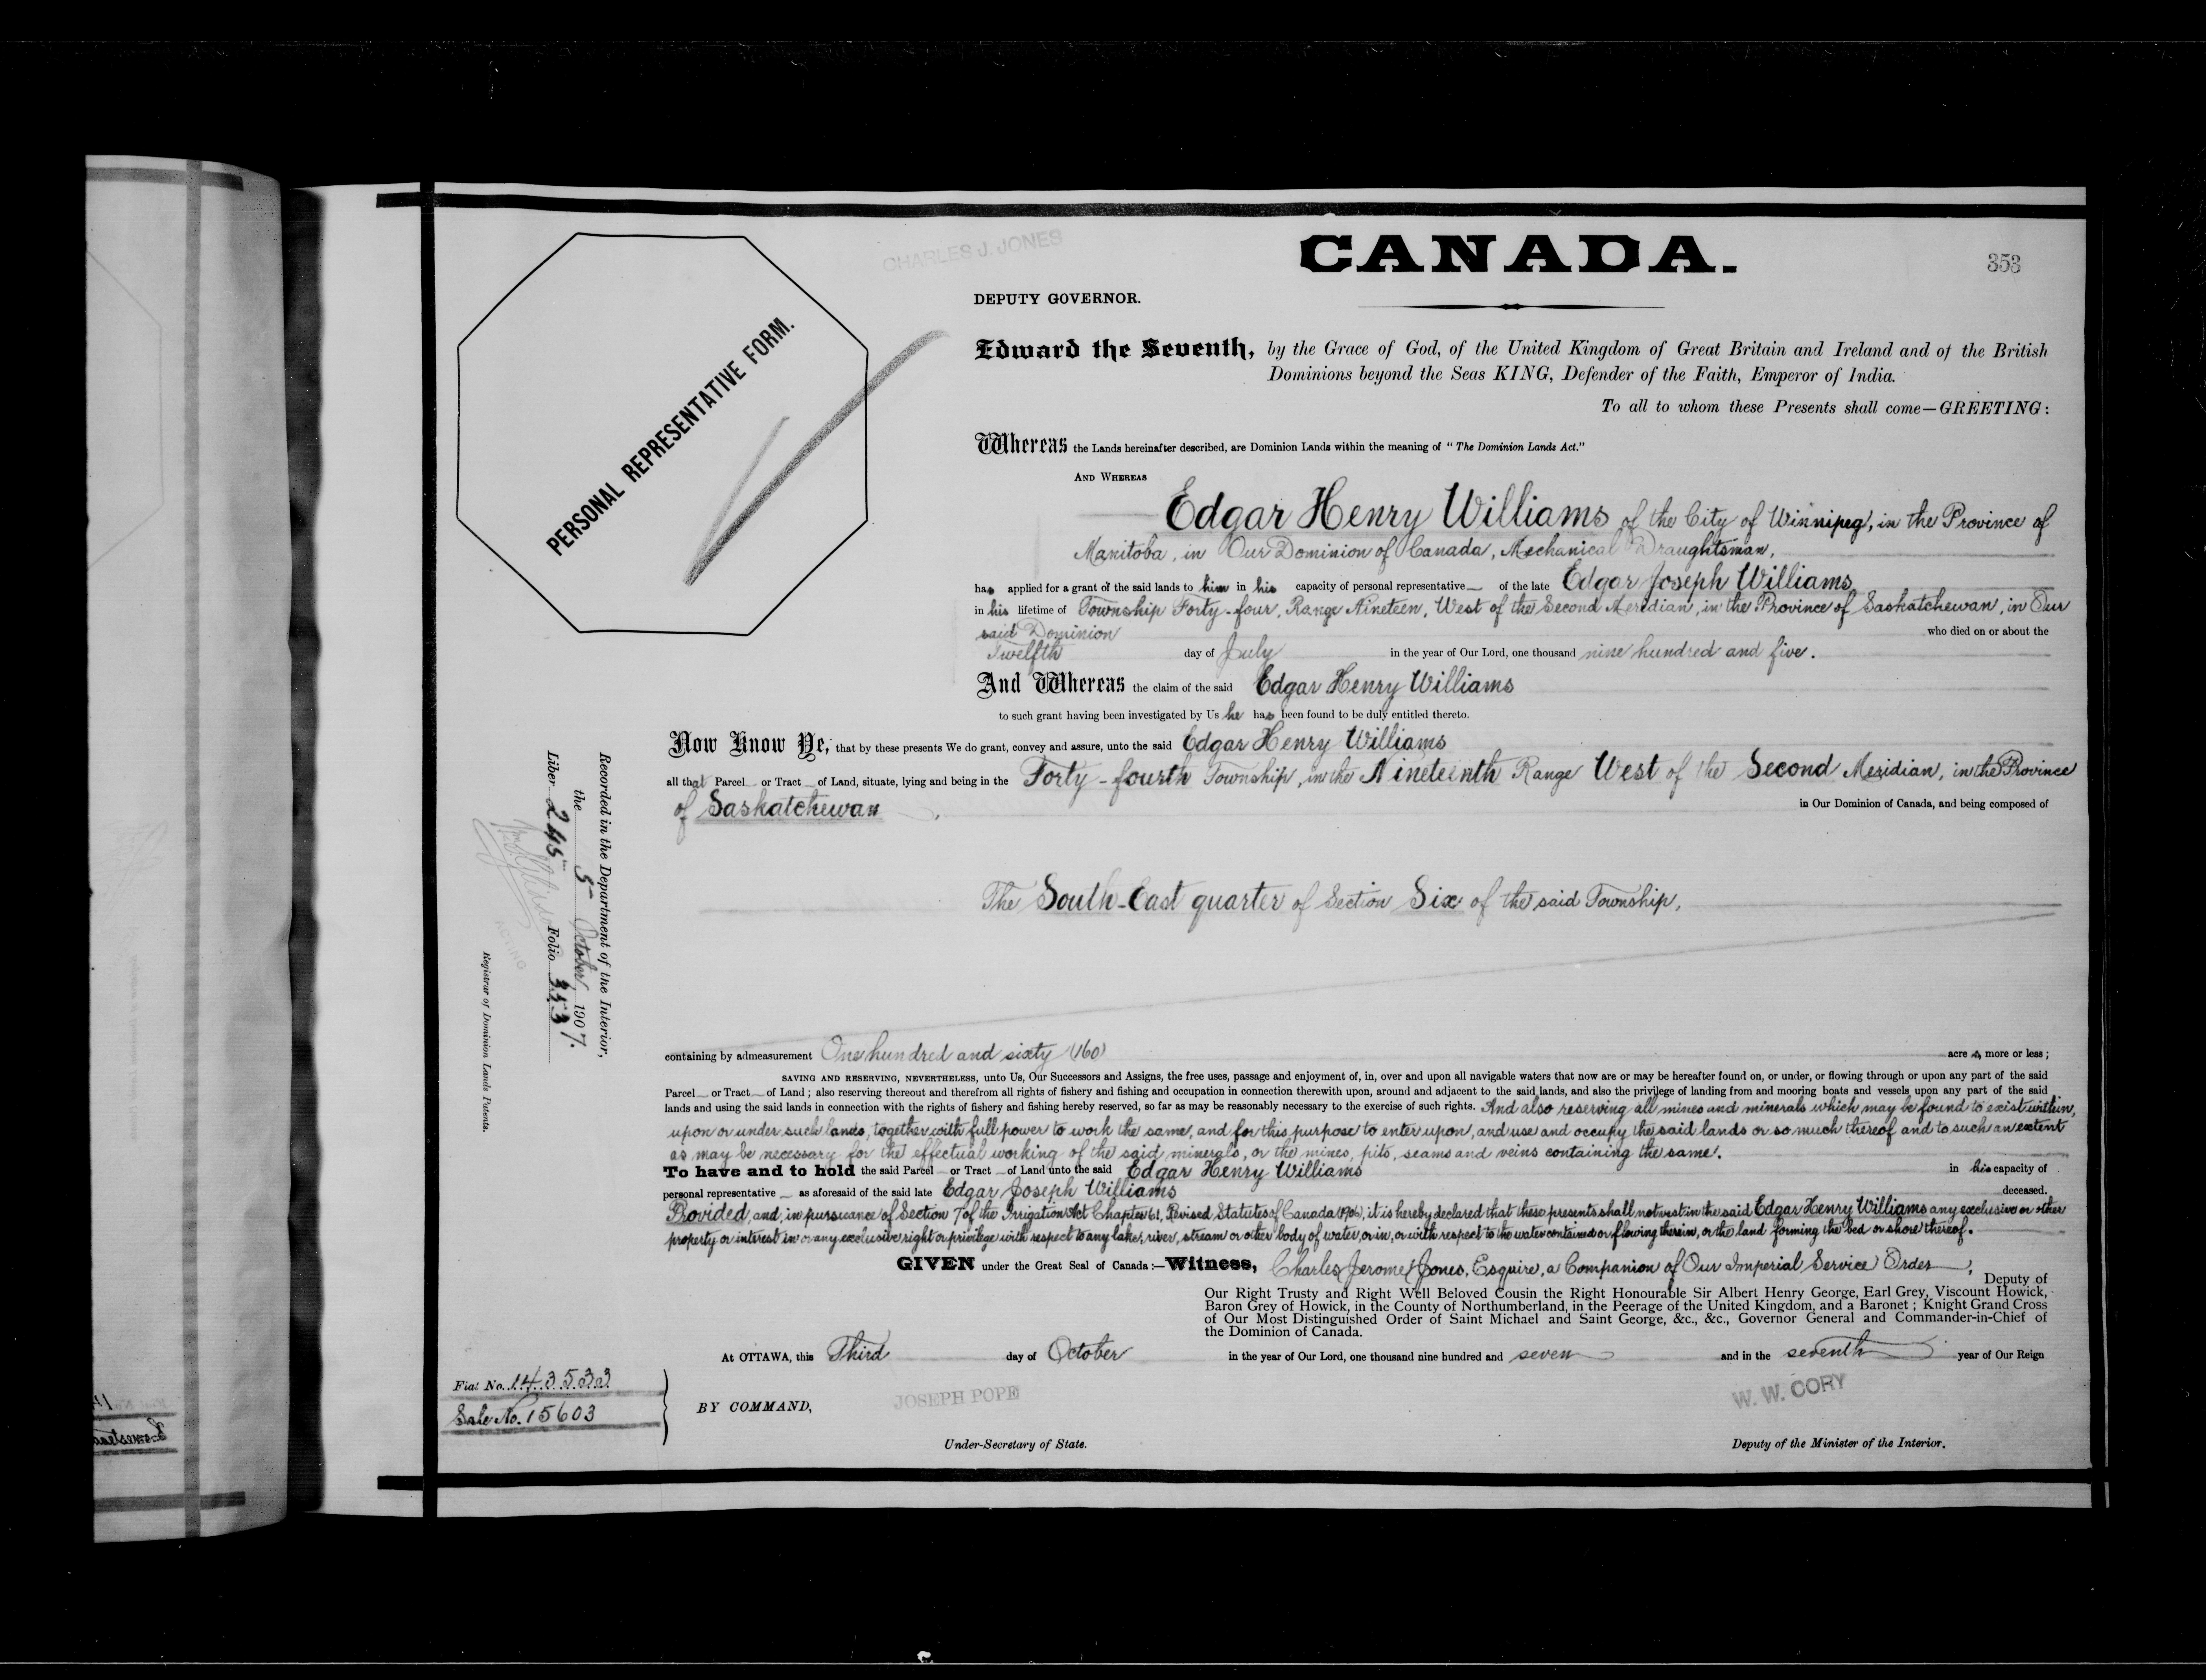 CHARLES J. JONES
CANADA.
353
DEPUTY GOVERNOR.
PERSONAL REPRESENTATIVE FORM.
Edward the Seventh, by the Grace of God, of the United Kingdom of Great Britain and Ireland and of the British
Dominions beyond the Seas KING, Defender of the Faith, Emperor of India.
To all to whom these Presents shall come—GREETING:
Whereas the Lands hereinafter described, are Dominion Lands within the meaning of "The Dominion Lands Act."
AND WHEREAS
Edgar Henry Williams of the City of Winnipeg, in the Province of
Manitoba, in Our Dominion of Canada, Mechanical Draughtsman,
has applied for a grant of the said lands to him in his capacity of personal representative of the late Edgar Joseph Williams
in his lifetime of Township Forty-four, Range Nineteen, West of the Second Meridian, in the Province of Saskatchewan, in Our
said Dominion who died on or about the
Twelfth day of July in the year of Our Lord, one thousand nine hundred and five.
And Whereas the claim of the said Edgar Henry Williams
to such grant having been investigated by Us he has been found to be duly entitled thereto.
Now Know Ye, that by these presents We do grant, convey and assure, unto the said Edgar Henry Williams
all that Parcel or Tract of Land, situate, lying and being in the Forty-fourth Township, in the Nineteenth Range West of the Second Meridian, in the Province
of Saskatchewan, in Our Dominion of Canada, and being composed of
The South-East quarter of Section Six of the said Township,
containing by admeasurement One hundred and sixty (160) acres, more or less;
SAVING AND RESERVING, NEVERTHELESS, unto Us, Our Successors and Assigns, the free uses, passage and enjoyment of, in, over and upon all navigable waters that now are or may be hereafter found on, or under, or flowing through or upon any part of the said
Parcel or Tract of Land; also reserving thereout and therefrom all rights of fishery and fishing and occupation in connection therewith upon, around and adjacent to the said lands, and also the privilege of landing from and mooring boats and vessels upon any part of the said
lands and using the said lands in connection with the rights of fishery and fishing hereby reserved, so far as may be reasonably necessary to the exercise of such rights. And also reserving all mines and minerals which may be found to exist within,
upon or under such lands, together with full power to work the same, and for this purpose to enter upon, and use and occupy the said lands or so much thereof and to such an extent
as may be necessary for the effectual working of the said minerals, or the mines, pits, seams and veins containing the same.
To have and to hold the said Parcel or Tract of Land unto the said Edgar Henry Williams in his capacity of
personal representative as aforesaid of the said late Edgar Joseph Williams deceased.
Provided, and, in pursuance of Section 7 of the Irrigation Act Chapter 61, Revised Statutes of Canada (1906), it is hereby declared that these presents shall not vest in the said Edgar Henry Williams any exclusive or other
property or interest in or any exclusive right or privilege with respect to any lake, river, stream or other body of water, or in, or with respect to the water contained or flowing therein, or the land forming the bed or shore thereof.
GIVEN under the Great Seal of Canada:—Witness, Charles Jerome Jones, Esquire, a Companion of Our Imperial Service Order,
Deputy of
Our Right Trusty and Right Well Beloved Cousin the Right Honourable Sir Albert Henry George, Earl Grey, Viscount Howick,
Baron Grey of Howick, in the County of Northumberland, in the Peerage of the United Kingdom, and a Baronet; Knight Grand Cross
of Our Most Distinguished Order of Saint Michael and Saint George, &c., &c., Governor General and Commander-in-Chief of
the Dominion of Canada.
At OTTAWA, this Third day of October in the year of Our Lord, one thousand nine hundred and seven and in the seventh year of Our Reign
Fiat No. 143533
Sale No. 15603
BY COMMAND,
JOSEPH POPE
W. W. CORY
Under-Secretary of State.
Deputy of the Minister of the Interior.
Recorded in the Department of the Interior,
the 5 October 1907.
Liber 245 Folio 353
ACTING
Registrar of Dominion Lands Patents.